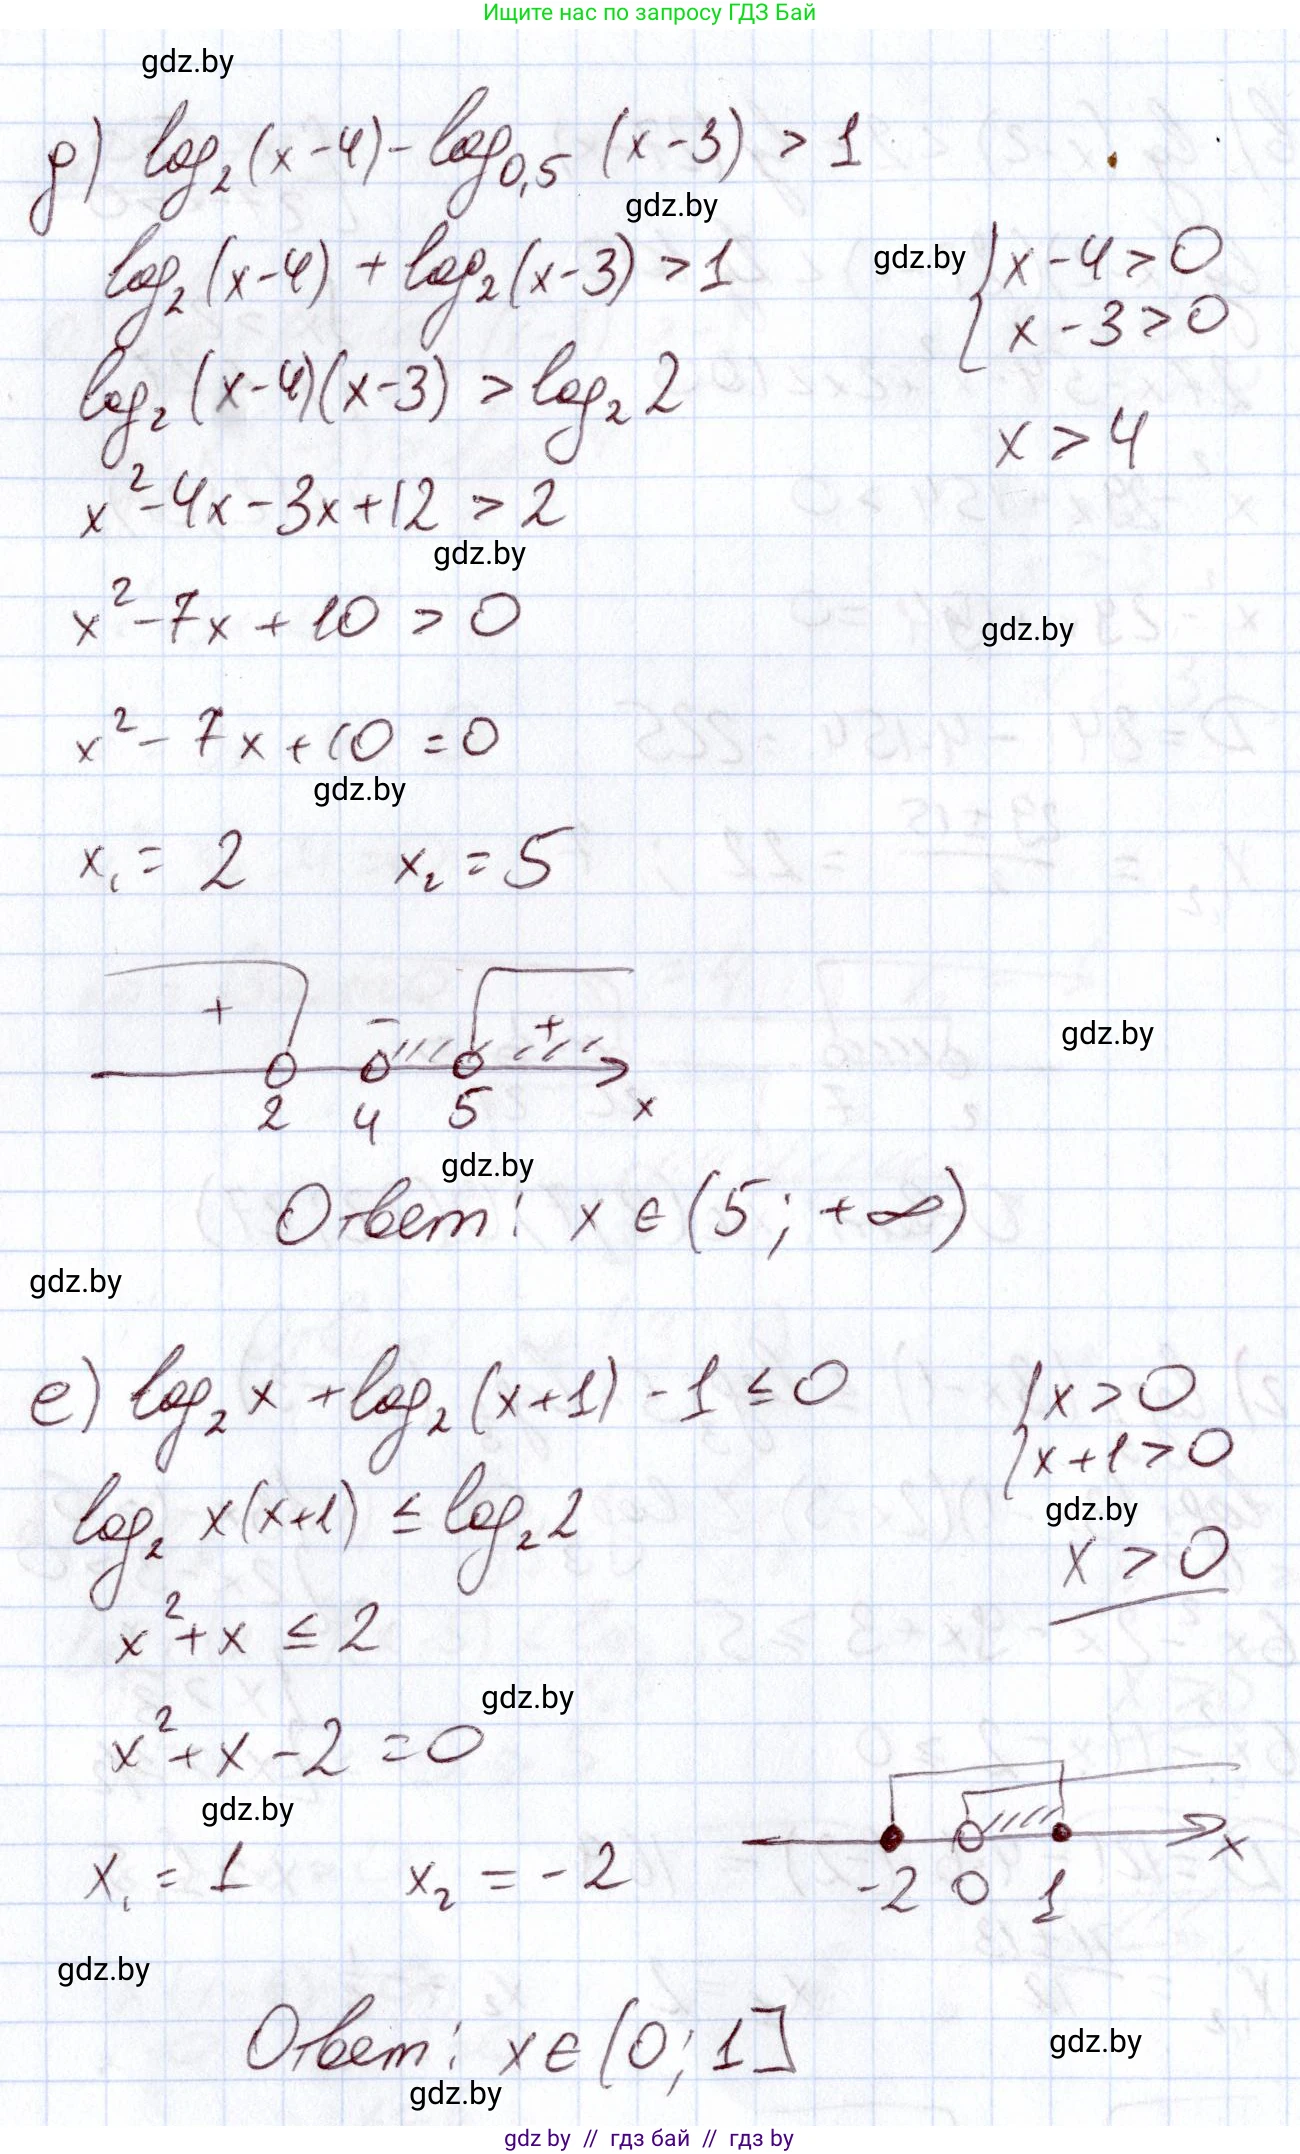 Ищите нас по запросу ГДЗ Бай
gdz.by
д) log₂(x-4) - log₀,₅ (x-3) > 1
gdz.by
log₂(x-4) + log₂(x-3) > 1
gdz.by { x-4>0
x-3>0
log₂(x-4)(x-3) > log₂ 2
x > 4
x²-4x-3x+12 > 2
gdz.by
x²-7x+10 > 0
gdz.by
x²-7x+10 = 0
gdz.by
x₁ = 2 x₂ = 5
+ - +
gdz.by
2 4 5 x
gdz.by
Ответ: x ∈ (5; +∞)
gdz.by
е) log₂ x + log₂ (x+1) - 1 ≤ 0
{ x>0
x+1>0
log₂ x(x+1) ≤ log₂ 2
gdz.by
x > 0
x²+x ≤ 2
gdz.by
x²+x-2 = 0
gdz.by
x₁ = 1 x₂ = -2
-2 0 1 x
gdz.by
Ответ: x ∈ (0; 1]
gdz.by
gdz.by
gdz by // гдз бай // гдз by